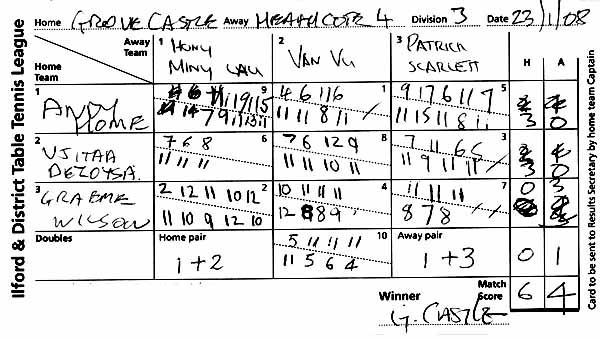 Ilford & District Table Tennis League
Home GROVE CASTLE Away HEATHCOTE 4 Division 3 Date 23/1/08
Away Team 1 HUNG MINH LAU 2 VAN VU 3 PATRICK SCARLETT H A
Home Team
1 ANDY HOME 9 1 5
4 6 11 6
11 11 8 11
9 17 6 11 7
11 15 11 8 11
3 0
2 VJITHA DEZOYSA 6 8 3
7 6 8
11 11 11
7 6 12 9
11 11 10 11
7 11 6 5
11 9 11 11
3 0
3 GRAEME WILSON 2 4 7
2 12 11 10 12
11 10 9 12 10
10 11 11 11
12 8 8 9
11 11 11
8 7 8
0 3
Doubles Home pair 10 Away pair
1+2
5 11 11 11
11 5 6 4
1+3
0 1
Winner G. CASTLE Match Score 6 4
Card to be sent to Results Secretary by home team Captain